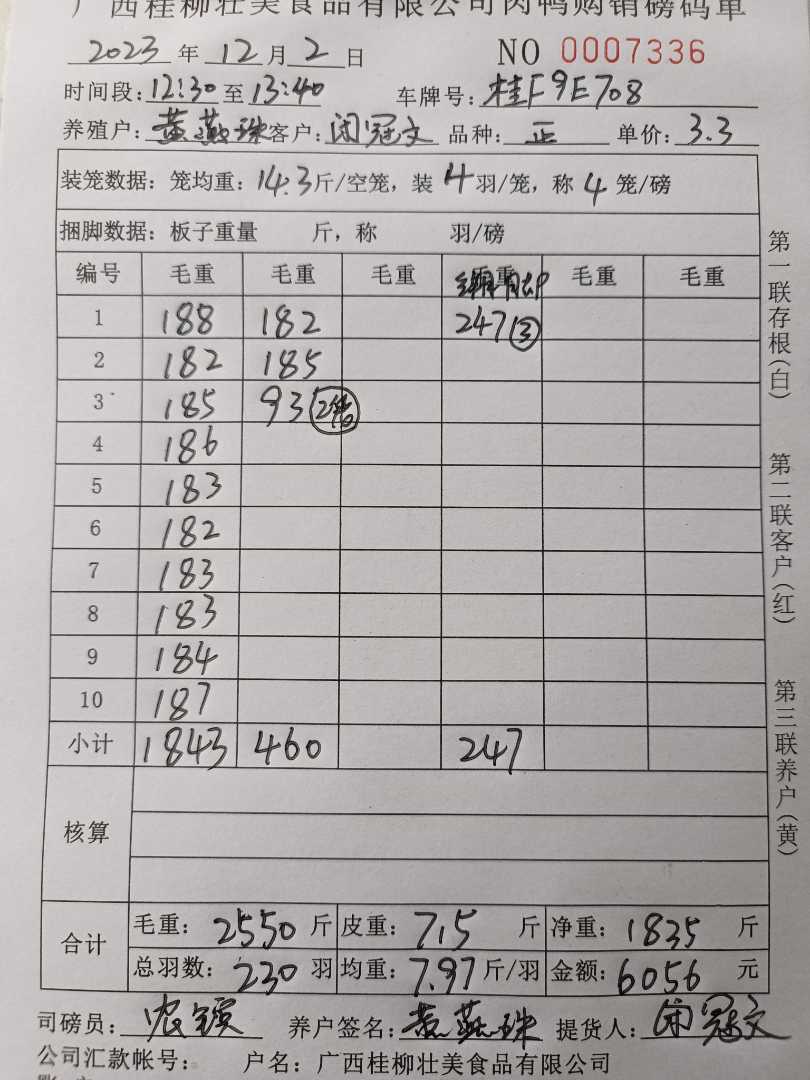 广西桂柳壮美食品有限公司肉鸭购销磅码单
2023 年 12 月 2 日 NO 0007336
时间段: 12:30 至 13:40 车牌号: 桂F9E708
养殖户: 黄燕珠 客户: 闭冠文 品种: 正 单价: 3.3
装笼数据: 笼均重: 14.3 斤/空笼, 装 4 羽/笼, 称 4 笼/磅
捆脚数据: 板子重量 斤, 称 羽/磅
编号 毛重 毛重 毛重 毛重 毛重 毛重
1 188 182 247 ③
2 182 185
3 185 93 2笼
4 186
5 183
6 182
7 183
8 183
9 184
10 187
小计 1843 460 247
核算
合计 毛重: 2550 斤 皮重: 715 斤 净重: 1835 斤
总羽数: 230 羽 均重: 7.97 斤/羽 金额: 6056 元
司磅员: 农 养户签名: 黄燕珠 提货人: 闭冠文
公司汇款帐号: 户名: 广西桂柳壮美食品有限公司
第一联存根(白)
第二联客户(红)
第三联养户(黄)